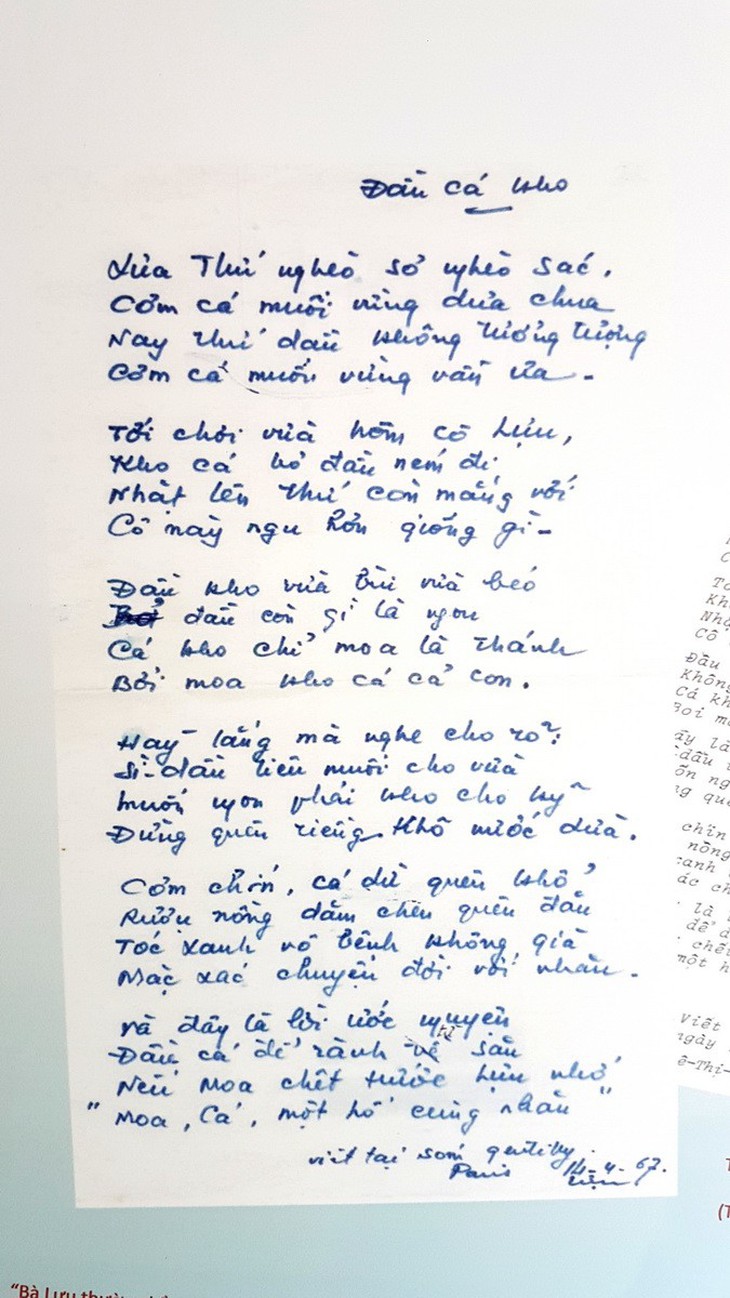 Đầu cá kho
Xưa Thứ nghèo sơ nghèo sác.
Cơm cá muối vừng dưa chua
Nay Thứ dầu không tưởng tượng
Cơm cá muối vừng vẫn ưa -
Tới chơi vừa hôm cô Lựu,
Kho cá bỏ đầu ném đi
Nhặt lên Thứ còn mắng với
Cô này ngu hỡn giống gì -
Đầu kho vừa bùi vừa béo
đầu còn gì là ngon
Cá kho chỉ moa là thánh
Bởi moa kho cá cả con.
Hãy lắng mà nghe cho rõ:
Sì-dầu liều muối cho vừa
Muốn ngon phải kho cho kỹ
Đừng quên riềng khô nước dừa.
Cơm chín, cá dừ quên khổ
Rượu nồng dăm chén quên đầu
Tóc xanh vô bệnh không già
Mặc xác chuyện đời với nhân -
Và đây là lời ước nguyền
Đầu cá để rành về sần
Nếu Moa chết trước Lựu nhớ
"Moa, Cá, một hố cùng nhân"
viết tại xóm gentilly.
Paris 14-4-67.
C
To
Kh
Nhậ
Cô
Đầu
Không
Cá kh
Boi m
ấy là
dầu
ốn ng
ng que
chín
nồng
xanh
ác ch
là
để
chết
một h
Viết
ngày
ê-Thị-
(T
"Bà Lưu thường